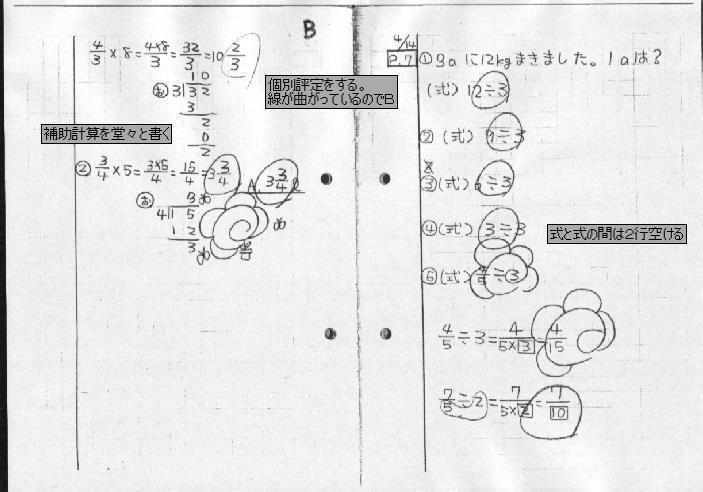 B
4/3 × 8 = 4×8/3 = 32/3 = 10 2/3
10
お 3)32
3
2
0
2
個別評定をする。
線が曲がっているのでB
補助計算を堂々と書く
② 3/4 × 5 = 3×5/4 = 15/4 = 3 3/4
A 3 3/4 ℓ
お 3
4)15
12
3
4/14
P.7
① 3aに12kgまきました。1aは？
(式) 12÷3
② (式) 9÷3
③ (式) 6÷3
④ (式) 3÷3
式と式の間は2行空ける
⑥ (式) 4/5÷3
4/5÷3 = 4/5×3 = 4/15
7/5÷2 = 7/5×2 = 7/10